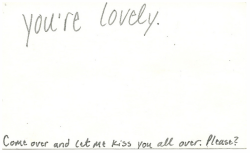 you're lovely.
Come over and let me kiss you all over. Please?